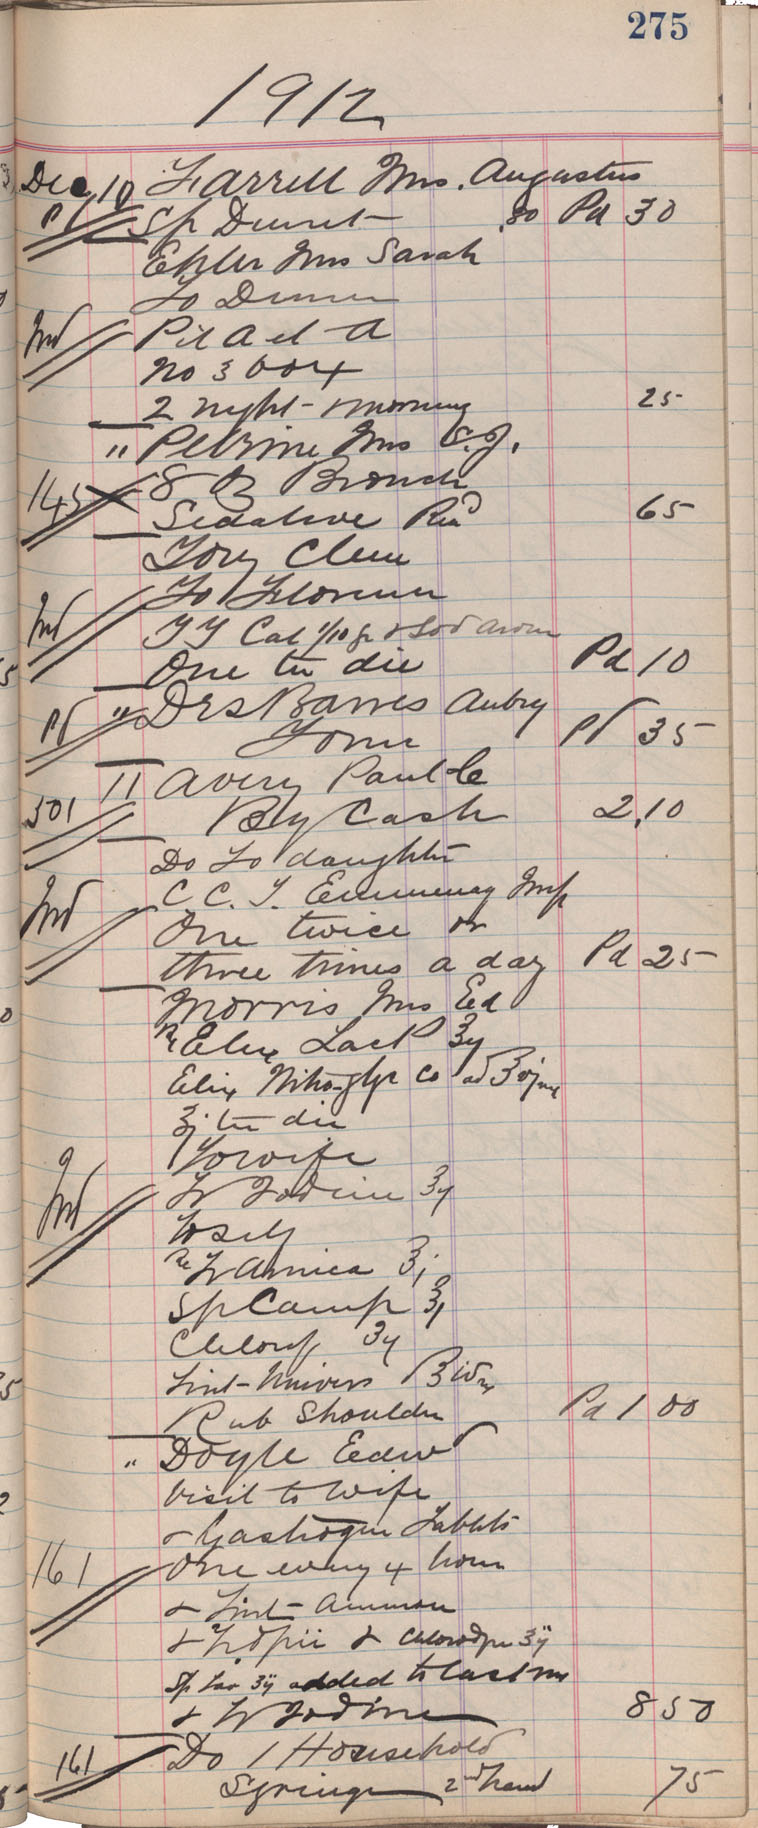 275
1912
Dec 10 Farrell Mrs. Augustus
Pd Sp Ducret .30 Pd 30
Mrs Sarah
To
Ind Pil A et A
No 3 box
2 night & morning 25
" Petrine Mrs S. J.
145 8 ℥ Bronch
Sedative 65
Tory Clem
Ind To Florence
TT Cal 1/10 gr & Sod Arom
One ter die Pd 10
Pd " Drs Barres Aubry
Tonic Pd 35
501 11 Avery Paul C
By Cash 2.10
Do To daughter
Ind C. C. T. Emmenag Imp
One twice or
three times a day Pd 25
Morris Mrs Ed
Rx Elix Lact P ℥ij
Elix Nitro-glyc Co ad ℥
℥j ter die
To wife
Ind Tr Iodine ℥ij
To self
Rx Tr Arnica ℥j
Sp Camph ℥j
Chlorof ℥ij
Lint-Univers
Rub Shoulder Pd 1 00
" Doyle Edwd
Visit to Wife
& Gastrogen Tablets
161 One every 4 hour
& Lint-Ammon
& Tr Opii & Chlorodyne ℥ij
Sp Lav ℥ij added to last mx
& Tr Iodine 8 50
161 Do 1 Household
Syringe 2nd hand 75